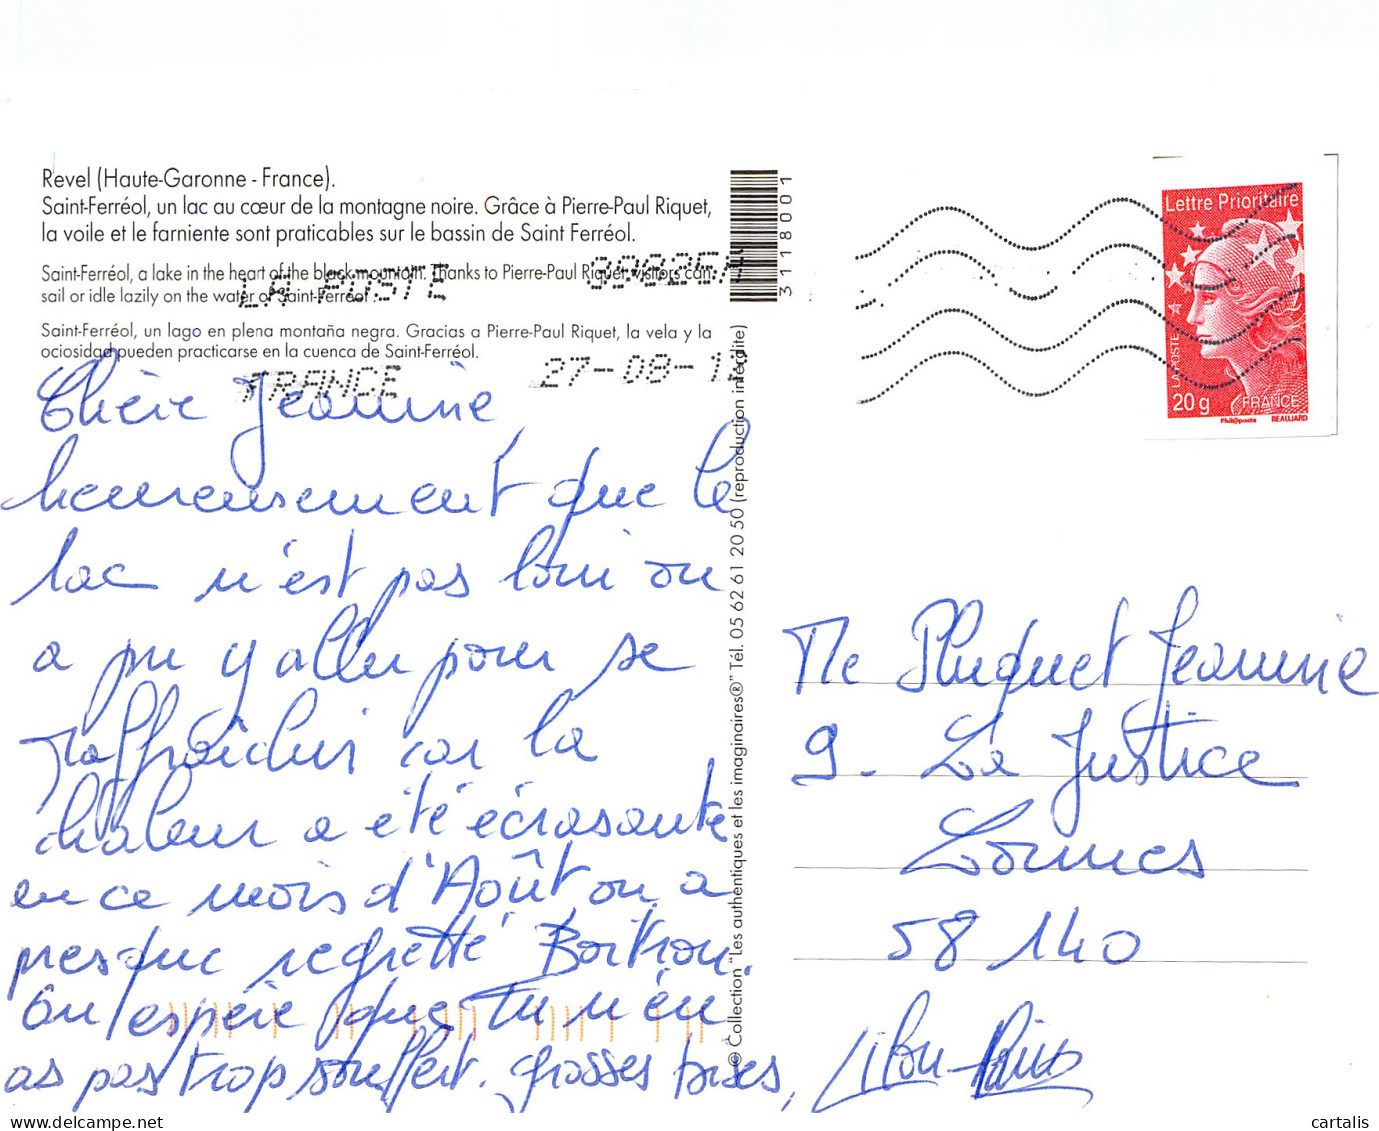 Revel (Haute-Garonne - France).
Saint-Ferréol, un lac au cœur de la montagne noire. Grâce à Pierre-Paul Riquet,
la voile et le farniente sont praticables sur le bassin de Saint Ferréol.
Saint-Ferréol, a lake in the heart of the black mountain. Thanks to Pierre-Paul Riquet, visitors can
sail or idle lazily on the water of Saint-Ferréol.
Saint-Ferréol, un lago en plena montaña negra. Gracias a Pierre-Paul Riquet, la vela y la
ociosidad pueden practicarse en la cuenca de Saint-Ferréol.
LA POSTE
FRANCE 27-08-12
3118001
© Collection "Les authentiques et les imaginaires®" Tél. 05 62 61 20 50 (reproduction interdite)
Lettre Prioritaire
LA POSTE
20 g FRANCE
Phil@poste BEAUJARD
Chère Jeannine
heureusement que le
lac n'est pas loin on
a pu y aller pour se
raffraîchir car la
chaleur a été écrasante
en ce mois d'Août on a
presque regretté Boitron.
On espère que Tu n'en
as pas trop souffert. grosses bises,
Me Pluquet Jeannine
9 - La Justice
Lormes
58 140
cartalis.com